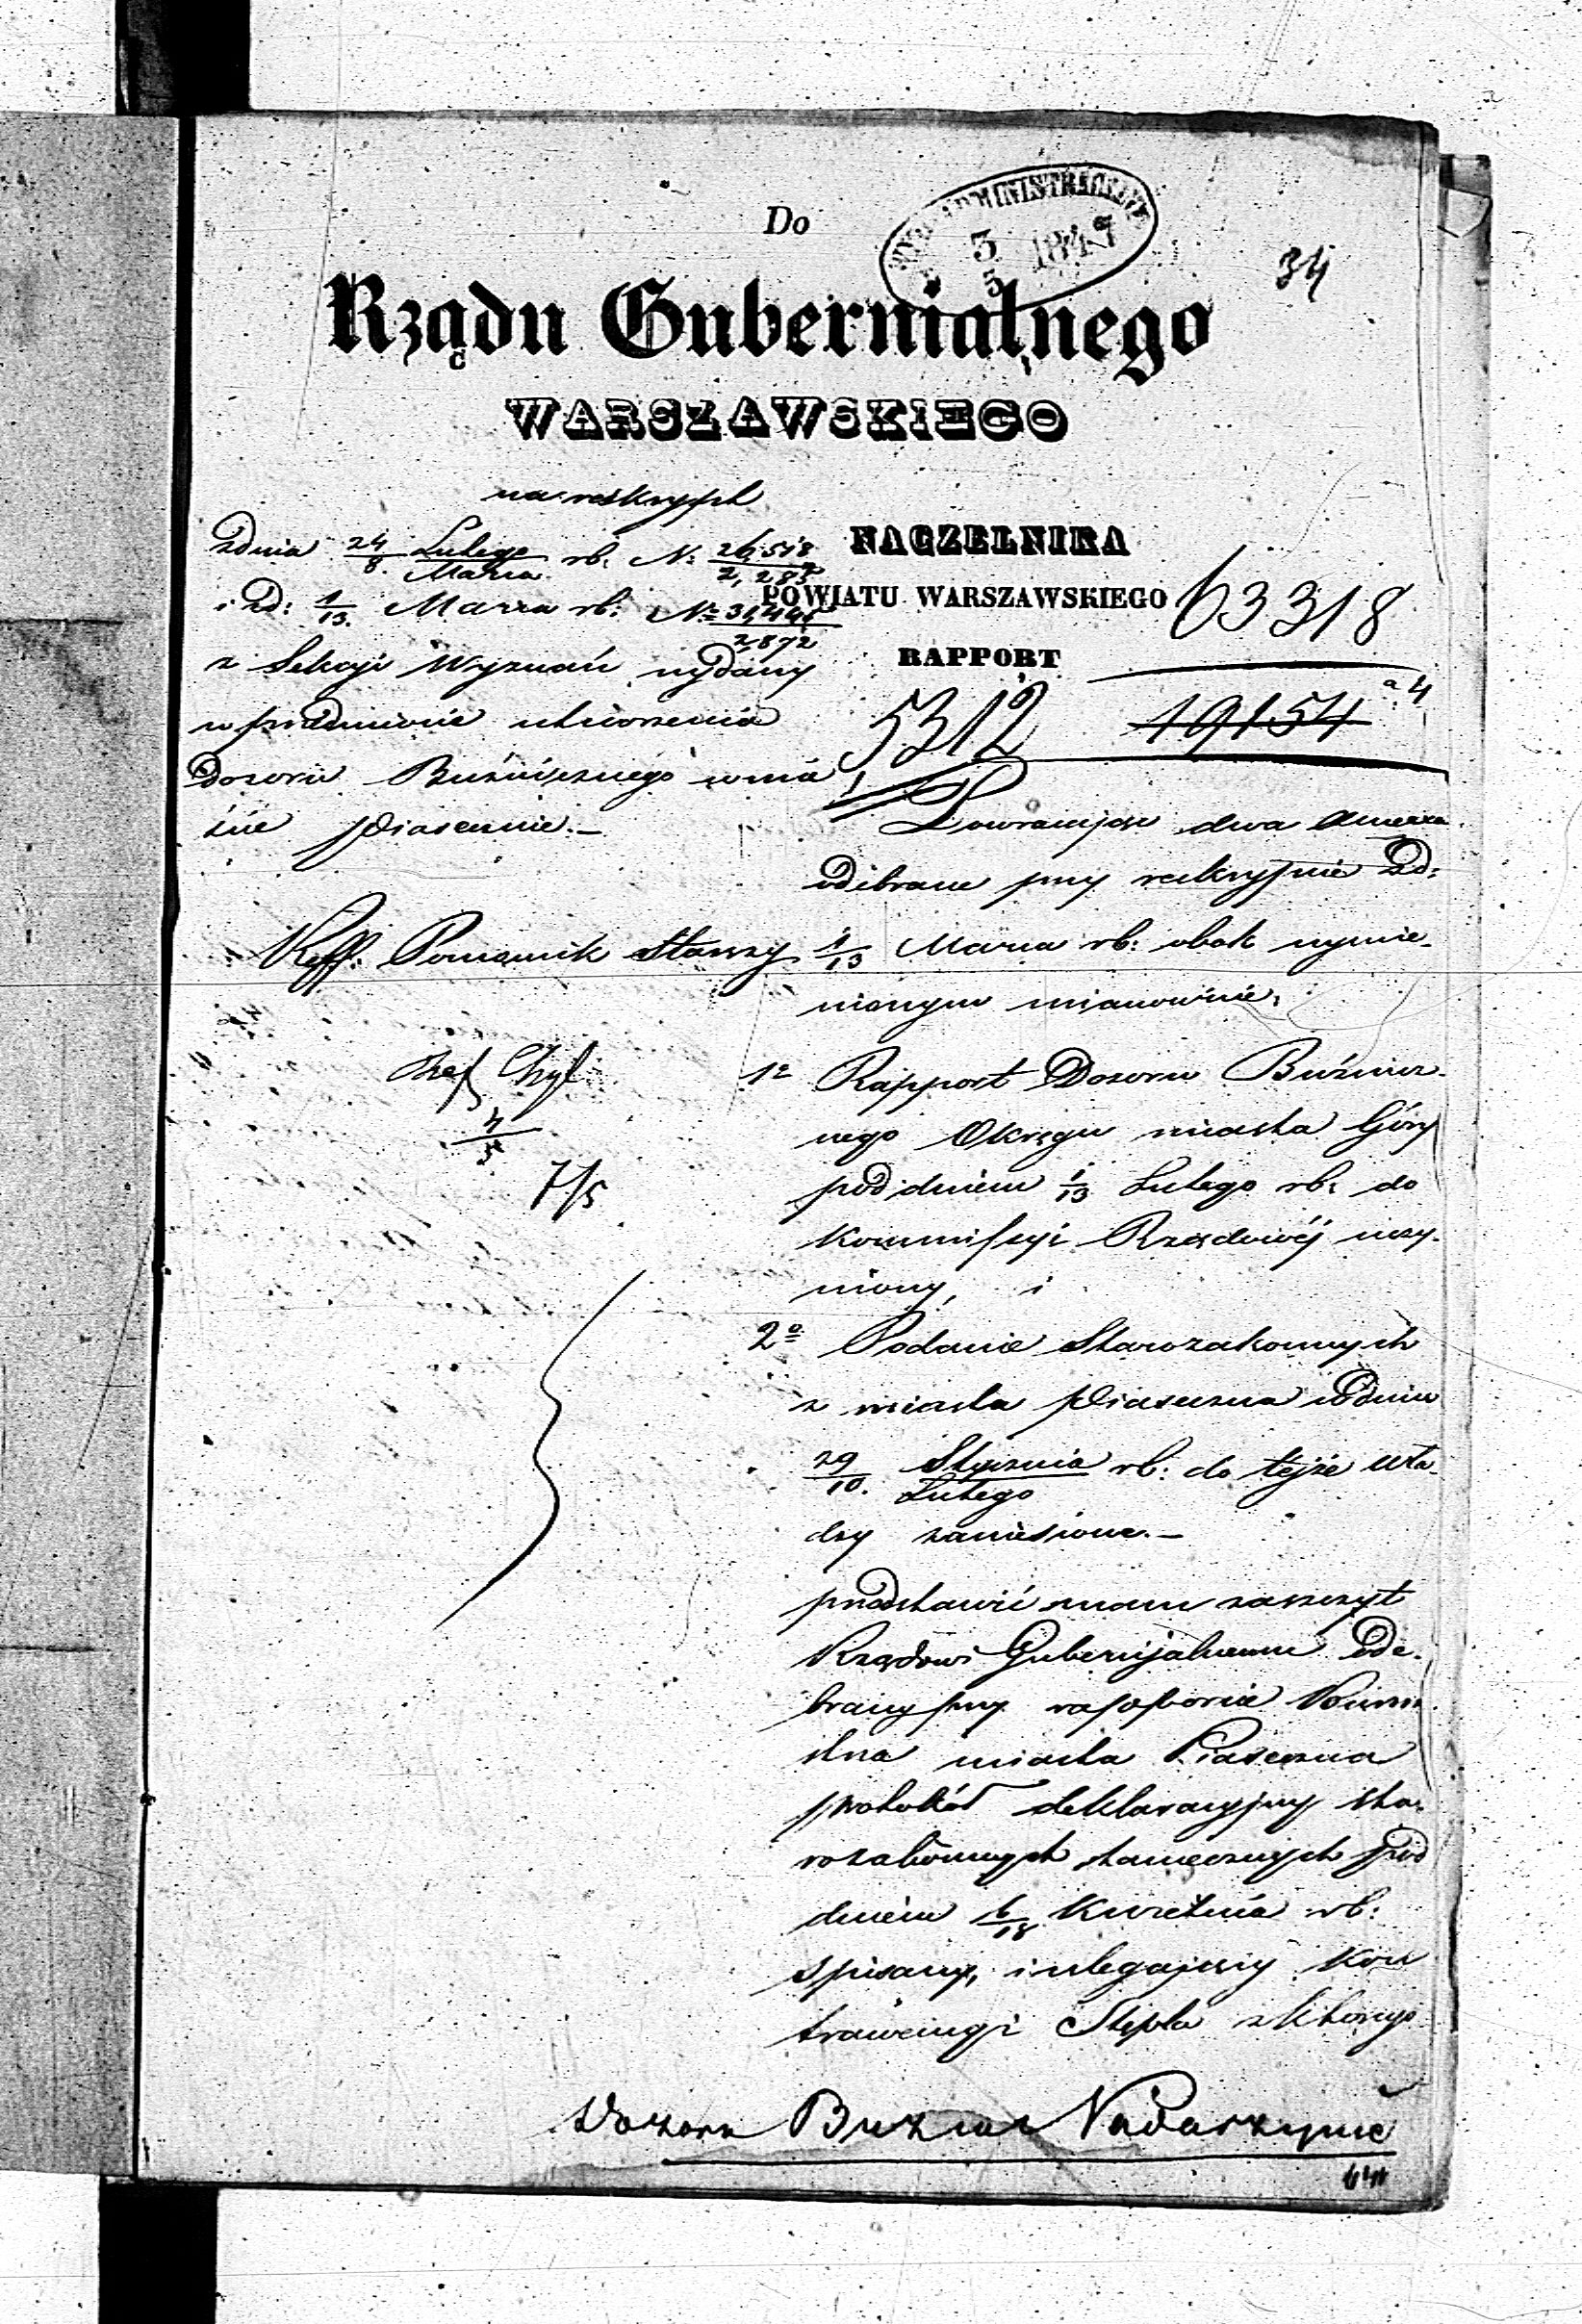 34
Do
WYDZ. ADMINISTRACYJNY
3/5 1847
Rządu Gubernialnego
WARSZAWSKIEGO
na reskrypt
zdnia 24/8 Lutego/Marca rb. Nr 26,518/2,285
i zd: 1/13 Marca rb: Nr 31,441/2872
z Sekcyi Wyznań wydany
w przedmiocie utworzenia
Dozoru Bużnicznego w mie
ście Piasecznie.—
Reff. Pomocnik Starszy
4/5
7/5
NACZELNIKA
POWIATU WARSZAWSKIEGO
63318
RAPPORT
5312
19154
a 4
Powracając dwa Annexa
odebrane przy reskrypcie zd:
1/13 Marca rb: obok wymie-
nionym mianowicie:
1o Rapport Dozoru Bużnicz-
nego Okręgu miasta Góry
pod dniem 1/13 Lutego rb: do
Kommissyi Rządowéj uczy-
niony, i
2o Podanie Starozakonnych
z miasta Piaseczna w dniu
29/10. Stycznia/Lutego rb: do tejże Wła-
dzy zaniesione.—
przedstawić mam zaszczyt
Rządowi Gubernijalnemu ode-
brany przy rapporcie Burmi-
strza miasta Piaseczna
protokół deklaracyjny sta-
rozakonnych tamecznych pod
dniem 6/18 Kwietnia rb:
spisany, i ulegający Kon
trawencyi Stępla z którego
Dozoru Bużn w Nadarzynie